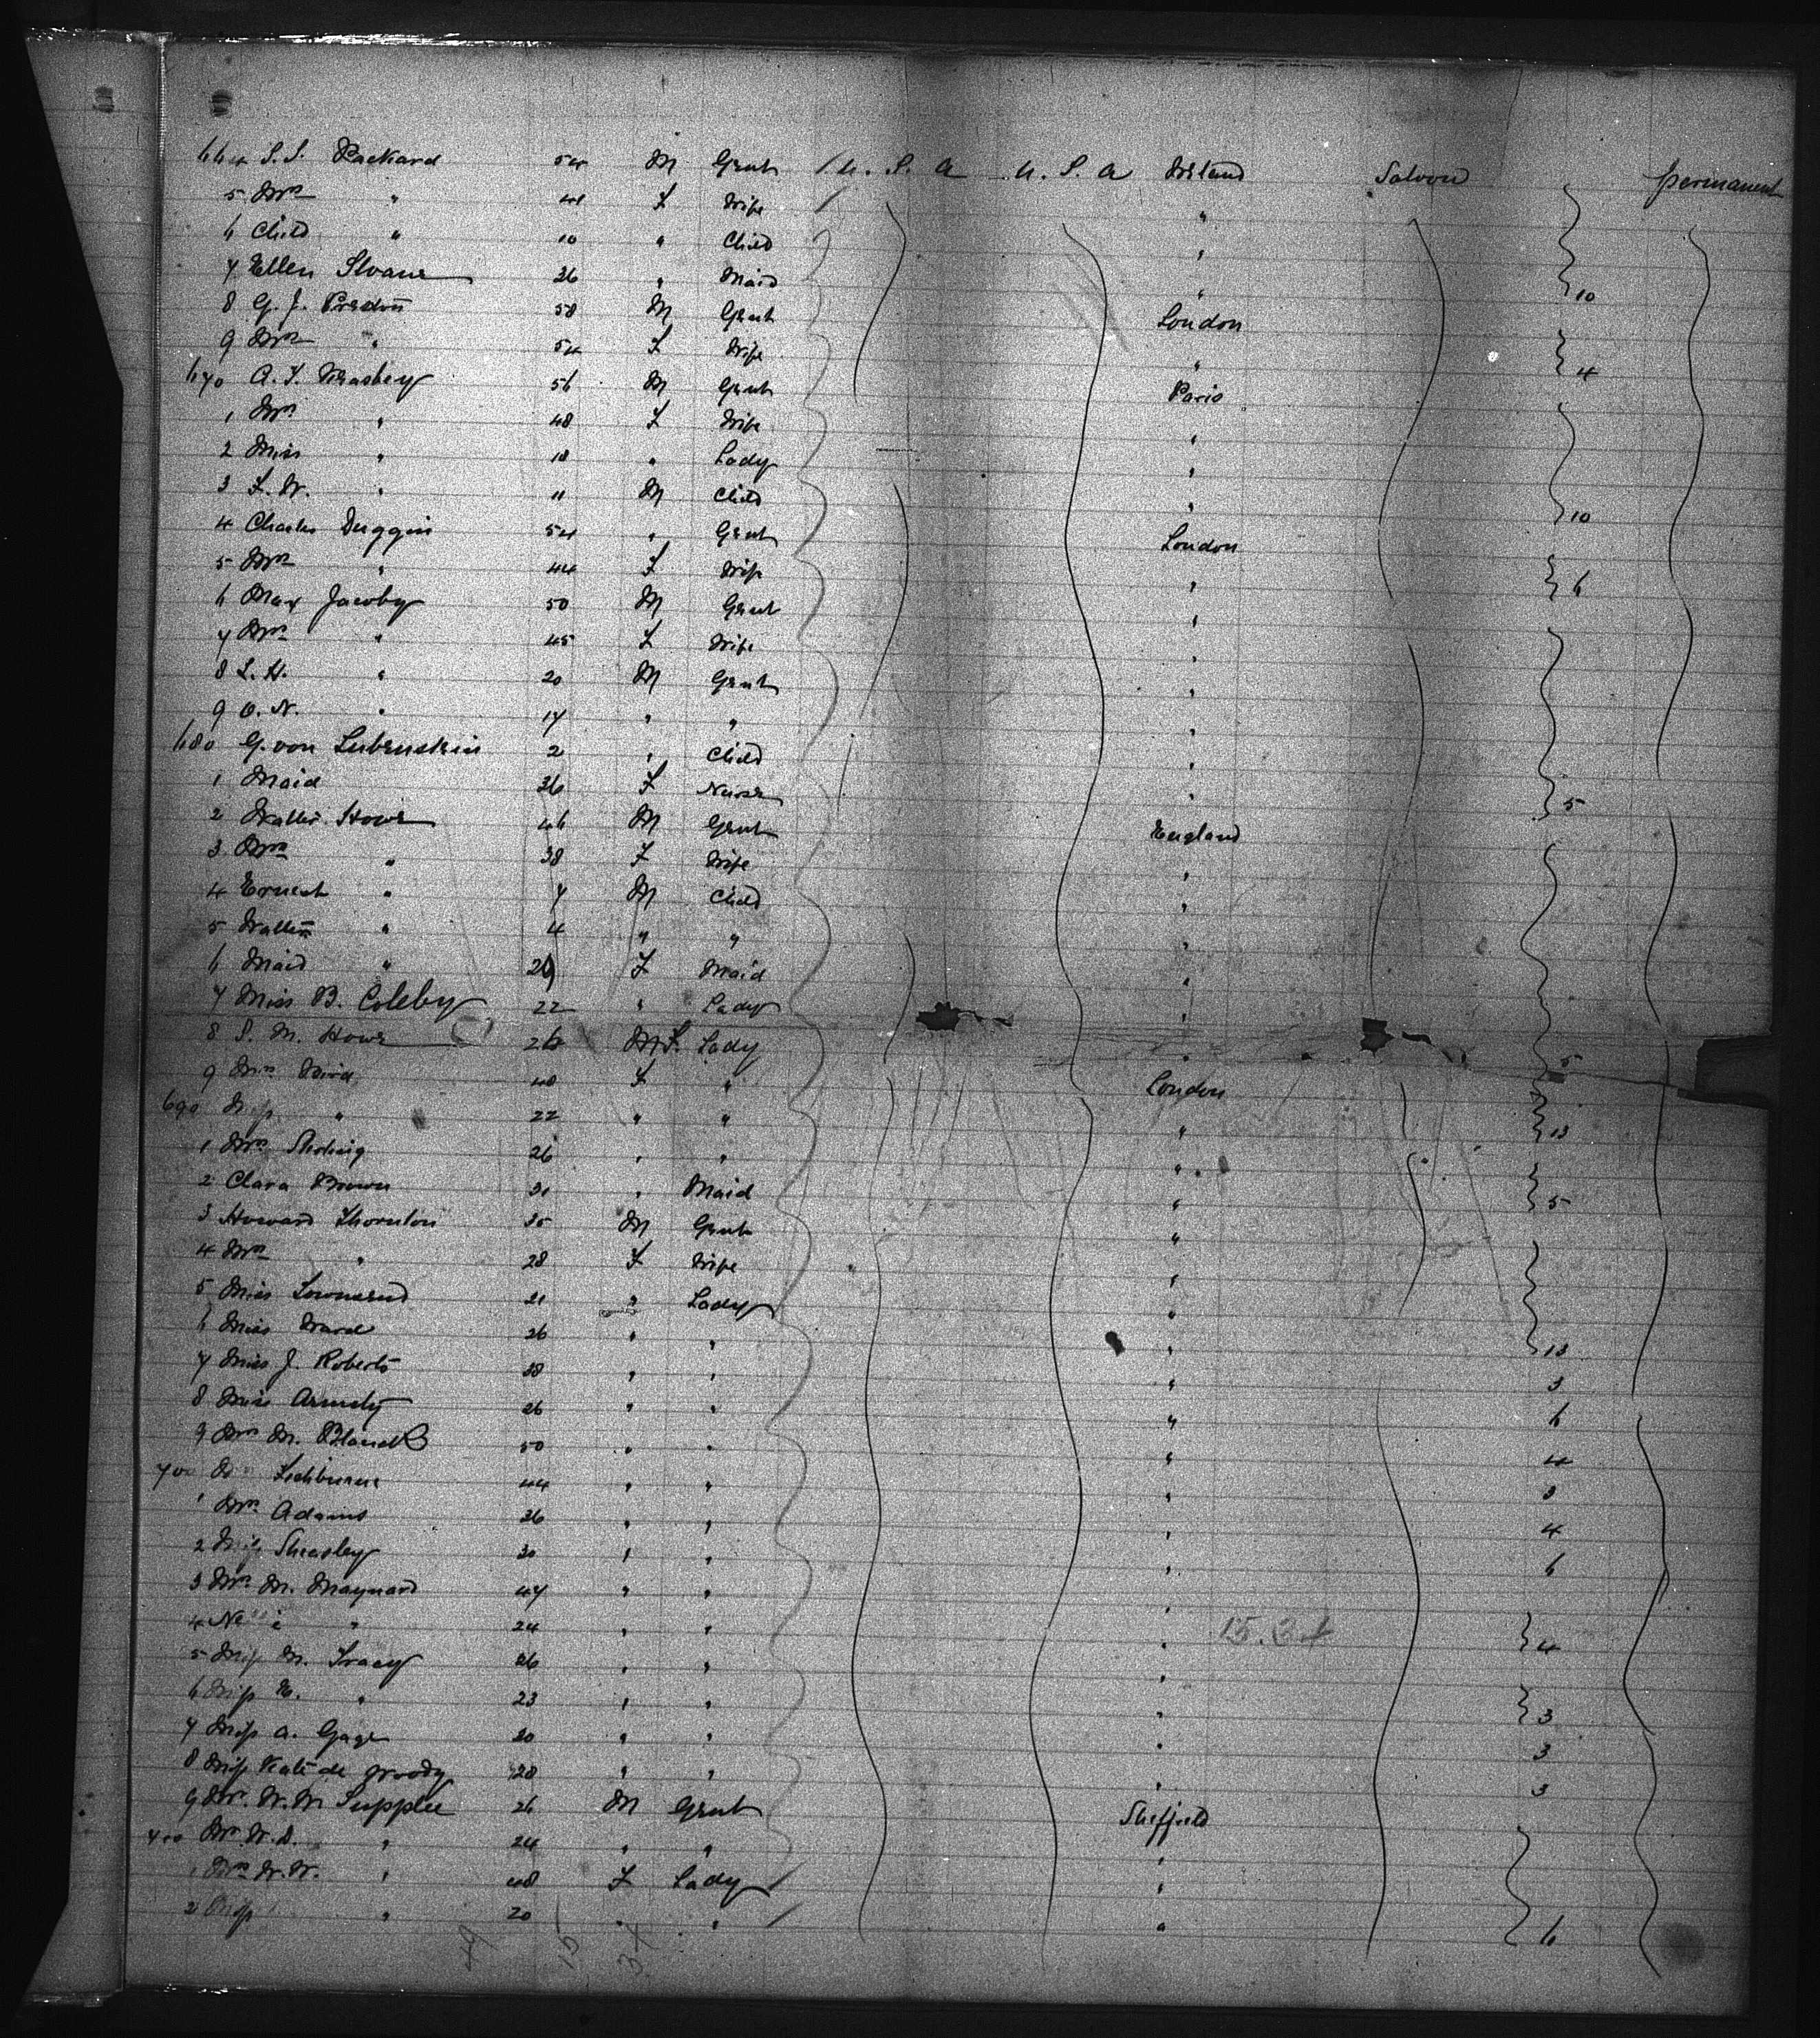 664 S. S. Packard 54 M Gent U. S. A U. S. A Ireland Saloon permanent
5 Mrs " 41 F Wife "
6 Child " 10 " Child "
7 Ellen Sloane 26 " Maid " 10
8 G. J. 58 M Gent London
9 Mrs " 54 F Wife " 4
670 A. J. 56 M Gent Paris
1 Mrs " 48 F Wife "
2 Miss " 18 " Lady "
3 F. W. " 11 M Child " 10
4 Charles Duggin 54 " Gent London
5 Mrs " 44 F Wife " 6
6 Max Jacoby 50 M Gent "
7 Mrs " 45 F Wife "
8 S. H. " 20 M Gent "
9 O. N. " 17 " " "
680 G. von 2 " Child "
1 Maid 26 F Nurse " 5
2 Walter Howe 46 M Gent England
3 Mrs " 38 F Wife "
4 Ernest " 7 M Child "
5 " 4 " " "
6 Maid " F Maid "
7 Miss B. Coleby 22 " Lady "
8 S. M. Howe 26 M F. Lady " 5
9 Mrs 40 F " London
690 Miss " 22 " " " 13
1 Mrs 26 " " "
2 Clara Brown 31 " Maid " 5
3 Howard Thornton 35 M Gent "
4 Mrs " 28 F Wife "
5 Miss Townsend 21 " Lady "
6 Miss Ward 26 " " " 13
7 Miss J. Roberts 28 " " " 3
8 Miss 26 " " " 6
9 Mrs M. 50 " " " 4
700 44 " " " 3
1 Mrs Adams 26 " " " 4
2 Miss Sheasley 30 " " " 6
3 Mrs M. Maynard 47 " " "
4 " 24 " " " 15. 34 4
5 Miss M. Tracy 26 " " "
6 Miss E. " 23 " " " 3
7 Miss A. Gage 20 " " " 3
8 Miss Kate de 28 " " " 3
9 Mr. W. M Supplee 26 M Gent Sheffield
Mr W. D. " 24 " " "
1 Mrs W. W. " 48 F Lady "
2 Miss " 20 " " " 6
49 15 34